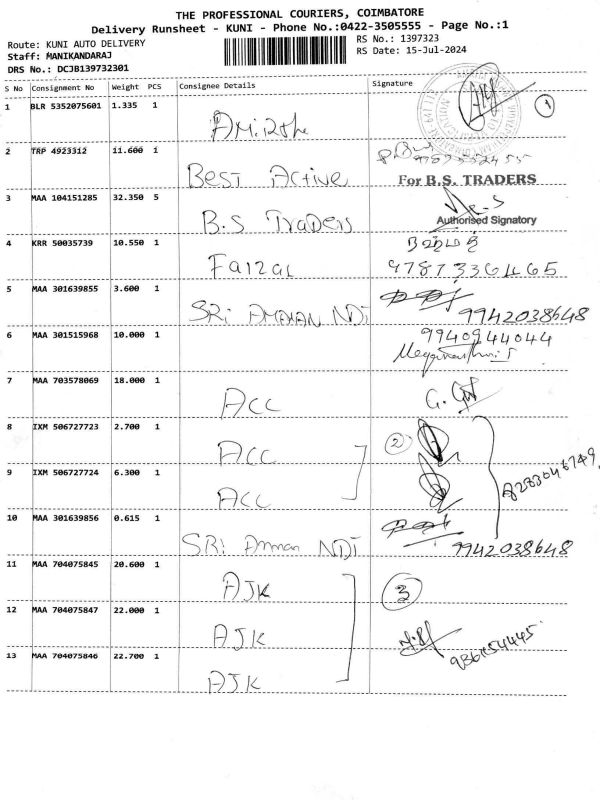 THE PROFESSIONAL COURIERS, COIMBATORE
Delivery Runsheet - KUNI - Phone No.:0422-3505555 - Page No.:1
Route: KUNI AUTO DELIVERY
RS No.: 1397323
Staff: MANIKANDARAJ
RS Date: 15-Jul-2024
DRS No.: DCJB139732301
S No Consignment No Weight PCS Consignee Details Signature
1 BLR 5352075601 1.335 1
1
2 TRP 4923312 11.600 1
Best Active
For B.S. TRADERS
3 MAA 104151285 32.350 5
B.S Traders
Authorised Signatory
4 KRR 50035739 10.550 1
Faizal
9787336465
5 MAA 301639855 3.600 1
SRi AMMAN NDT 9942038648
6 MAA 301515968 10.000 1
9940944044
7 MAA 703578069 18.000 1
ACC
8 IXM 506727723 2.700 1
ACC 2
9 IXM 506727724 6.300 1
ACC
10 MAA 301639856 0.615 1
SRi Amman NDT 9942038648
11 MAA 704075845 20.600 1
AJK 3
12 MAA 704075847 22.000 1
AJK
13 MAA 704075846 22.700 1
AJK